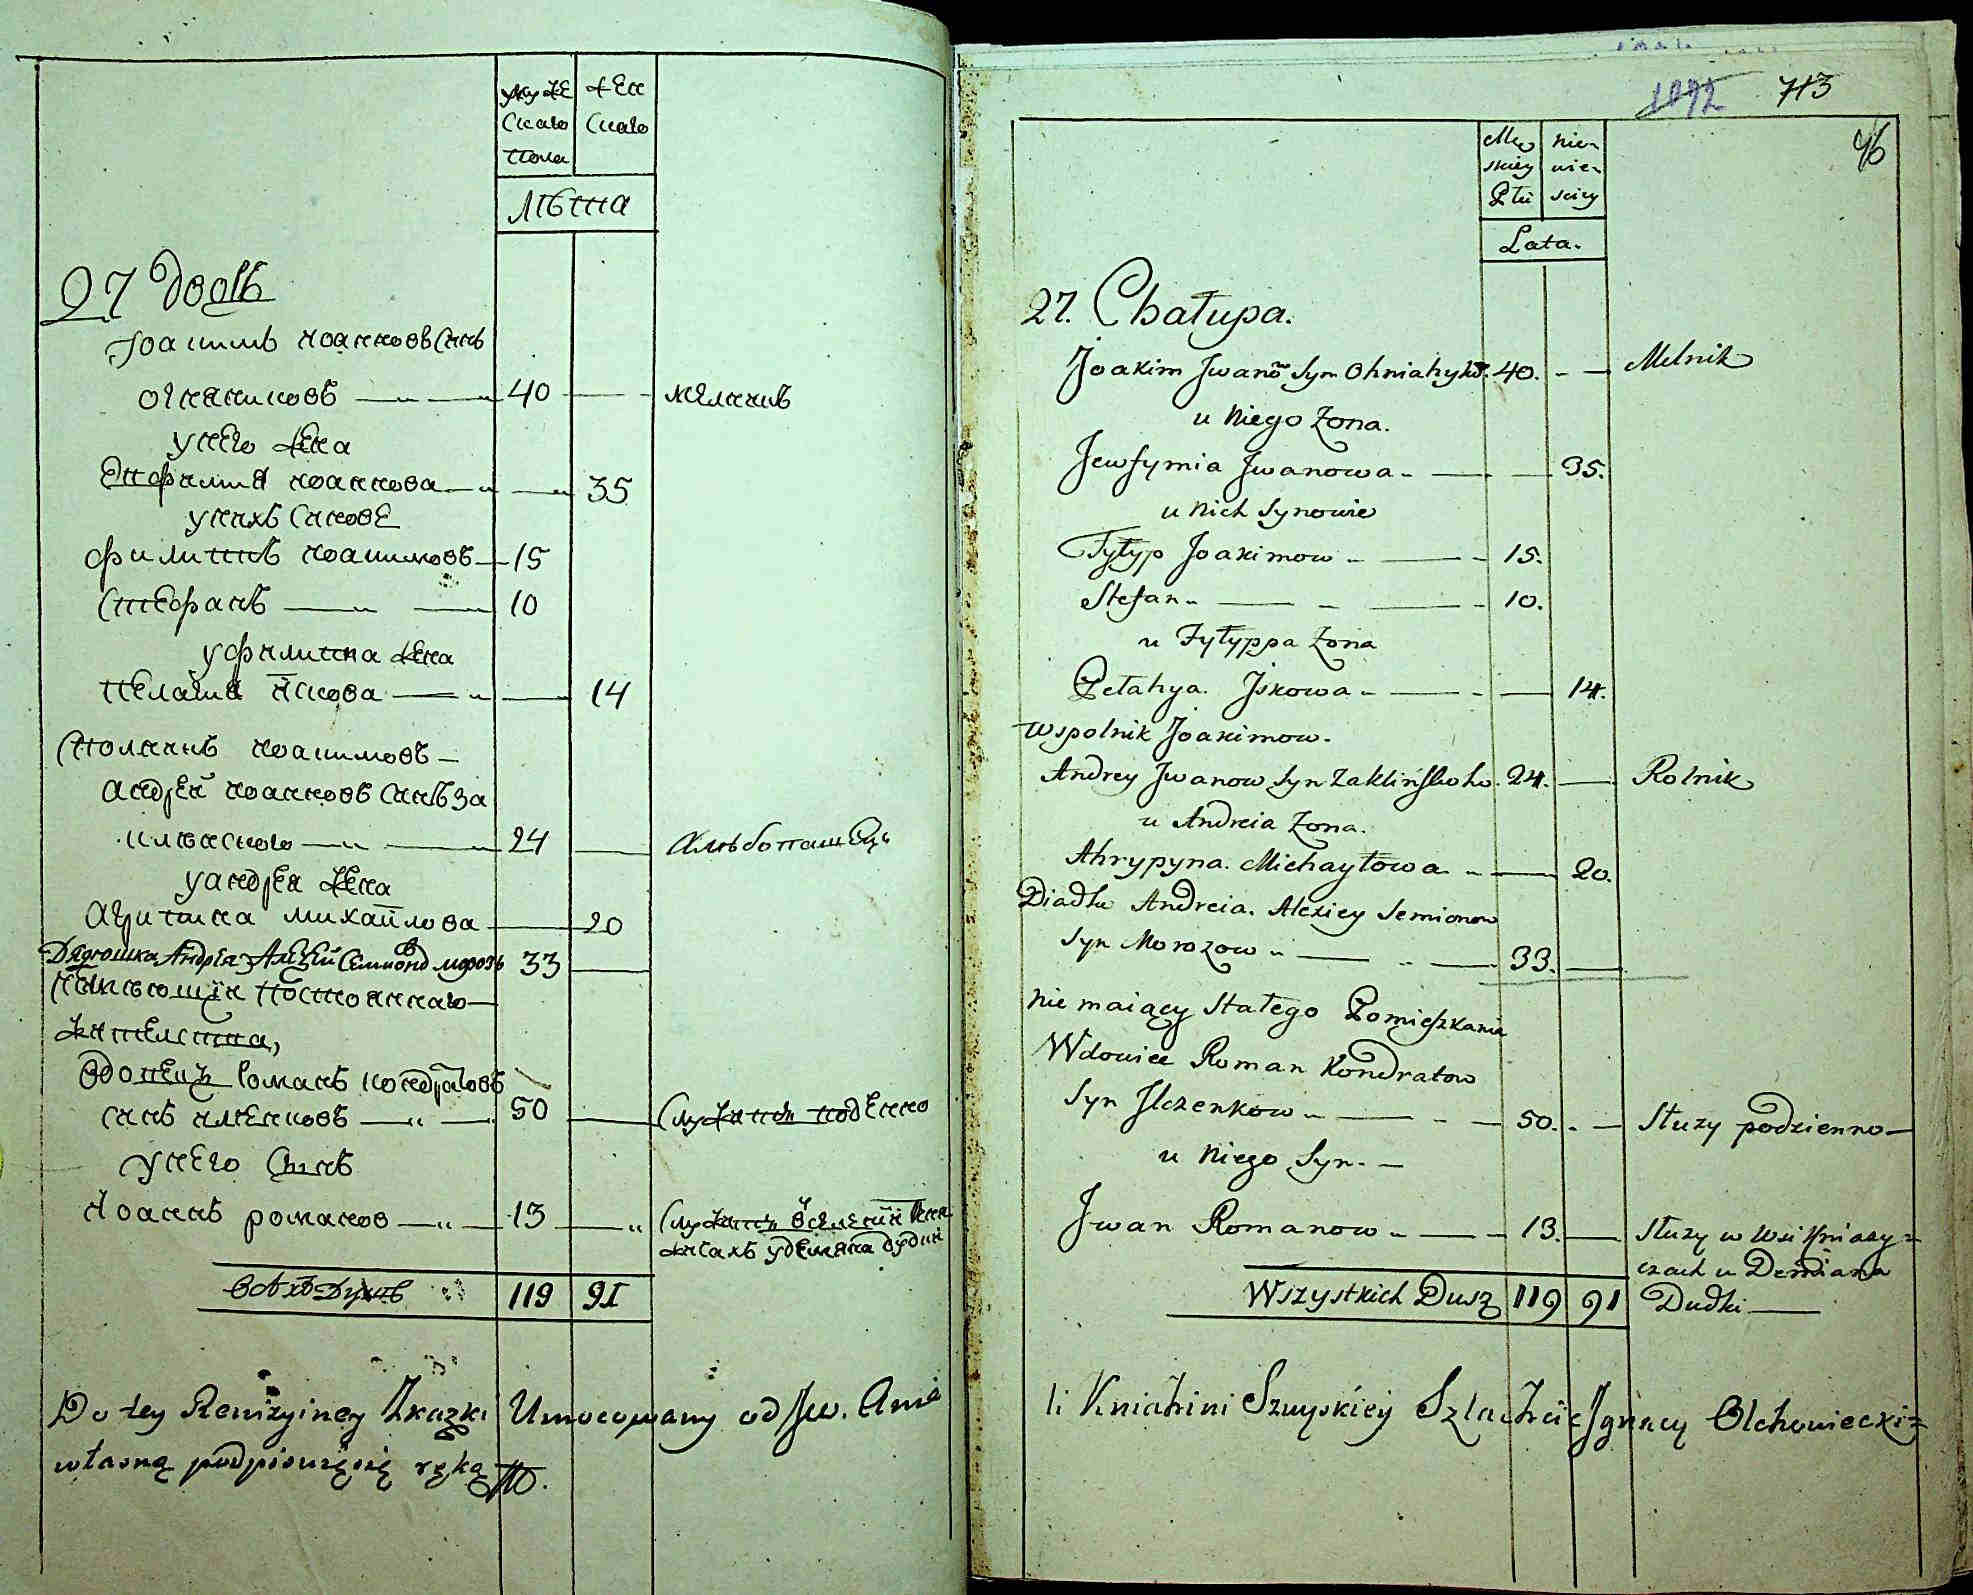 муже
скаго
пола
жен
скаго
лѣта
27 дворъ
Іоакимъ иоанновъ синъ
огнянниковъ 40 мелникъ
у него жена
Евфимия иоаннова 35
у нихъ синове
филиппъ иоакимовъ 15
Стефанъ 10
у филиппа жена
пелагия искова 14
Сполникъ иоакимовъ
андрей иоанновъ синъ за
клинского 24 хлѣбопашецъ
у андрея жена
агрипина михайлова 20
Дядюшка Андрея Алезей Семионов морозъ 33
неимѣющии постояннаго
жителства,
вдовецъ романъ кондратовъ
синъ илченковъ 50 служитъ поденно
у него синъ
Иоаннъ романов 13 служитъ в селении княжичахъ у демяна дудки
Всѣхъ Душъ 119 91
Do tey Rewizyiney Skazki Umocowany od Jw. Anie
własną podpisuięsię ręką
1092 713
46
Męskiey Płci
niewiesciey
Lata.
27. Chałupa.
Joakim Jwanow Syn Ohniahyków 40. Melnik
u niego Zona.
Jewfymia Jwanowa 35.
u nich Synowie
Fyłyp Joakimow 15.
Stefan 10.
u Fyłyppa Zona
Pełahya Jskowa 14.
wspolnik Joakimow.
Andrey Jwanow Syn Zaklińskoho 24. Rolnik
u Andreia Zona.
Ahrypyna Michayłowa 20.
Diadko Andreia. Alexiey Semionow
Syn Morozow 33.
nie maiący Stałego Pomięszkania
Wdowiec Roman Kondratow
Syn Jlczenkow 50. Słuzy podzienno
u niego Syn.
Jwan Romanow 13. Słuzy w wsi Kniazy=
czach u Demiana
Wszystkich Dusz 119 91 Dudki
li Kniahini Szuyskiey Szlachcic Jgnacy Olchowiecki